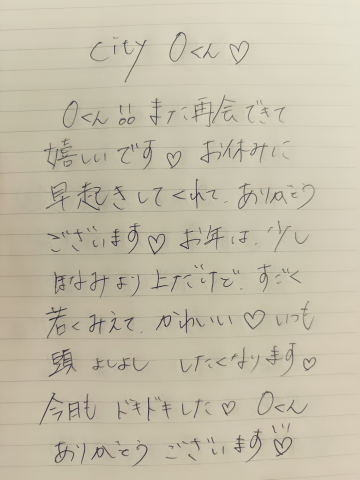 City Oくん♡
Oくん!!また再会できて
嬉しいです♡ お休みに
早起きしてくれて、ありがとう
ございます♡ お年は、少し
ほなみより上だけど、すごく
若くみえて、かわいい♡ いつも
頭 よしよし したくなります♡
今日も ドキドキした♡ Oくん
ありがとう ございます!!♡